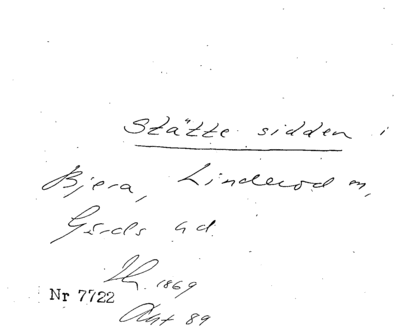 Stätte sidden i
Bjera, Linderod m,
Gärds hd
1869
Nr 7722
Akt 89